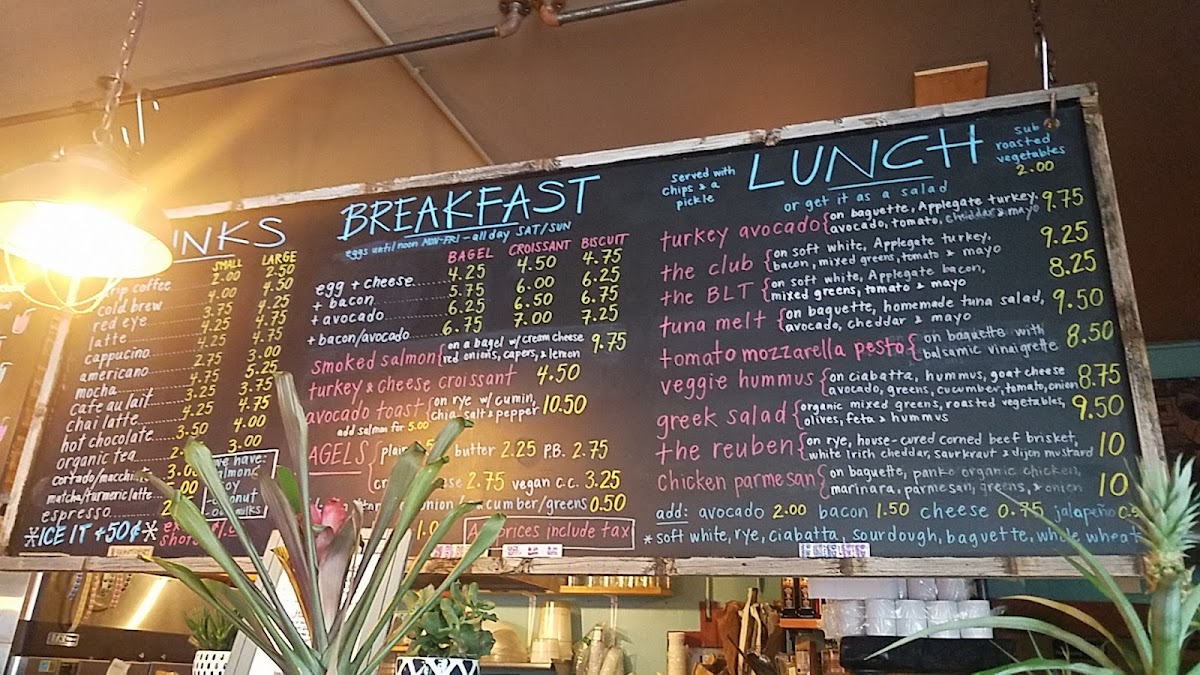 INKS
SMALL LARGE
drip coffee 2.00 2.50
cold brew 4.00 4.50
red eye 3.75 4.25
latte 4.25 4.75
cappucino 4.25 4.75
americano 2.75 3.00
mocha 4.75 5.25
cafe au lait 3.25 3.75
chai latte 4.25 4.75
hot chocolate 3.50 4.00
organic tea 3.00
cortado/macchiato
matcha/turmeric latte
espresso
we have:
almond
soy
coconut
*ICE IT +50¢*
BREAKFAST
eggs until noon MON-FRI - all day SAT/SUN
BAGEL CROISSANT BISCUIT
egg + cheese 4.25 4.50 4.75
+ bacon 5.75 6.00 6.25
+ avocado 6.25 6.50 6.75
+ bacon/avocado 6.75 7.00 7.25
smoked salmon { on a bagel w/ cream cheese 9.75
red onions, capers, & lemon
turkey & cheese croissant 4.50
avocado toast { on rye w/ cumin, 10.50
chia, salt & pepper
add salmon for 5.00
AGELS { plain butter 2.25 P.B. 2.75
2.75 vegan c.c. 3.25
cumber/greens 0.50
prices include tax
served with
chips & a
pickle
LUNCH
sub
roasted
vegetables
2.00
or get it as a salad
turkey avocado { on baguette, Applegate turkey, 9.75
avocado, tomato, cheddar & mayo
the club { on soft white, Applegate turkey, 9.25
bacon, mixed greens, tomato & mayo
the BLT { on soft white, Applegate bacon, 8.25
mixed greens, tomato & mayo
tuna melt { on baguette, homemade tuna salad, 9.50
avocado, cheddar & mayo
tomato mozzarella pesto { on baguette with 8.50
balsamic vinaigrette
veggie hummus { on ciabatta, hummus, goat cheese 8.75
avocado, greens, cucumber, tomato, onion
greek salad { organic mixed greens, roasted vegetables, 9.50
olives, feta & hummus
the reuben { on rye, house-cured corned beef brisket, 10
white irish cheddar, saurkraut & dijon mustard
chicken parmesan { on baguette, panko organic chicken, 10
marinara, parmesan, greens, & onion
add: avocado 2.00 bacon 1.50 cheese 0.75 jalapeño
* soft white, rye, ciabatta, sourdough, baguette, whole wheat